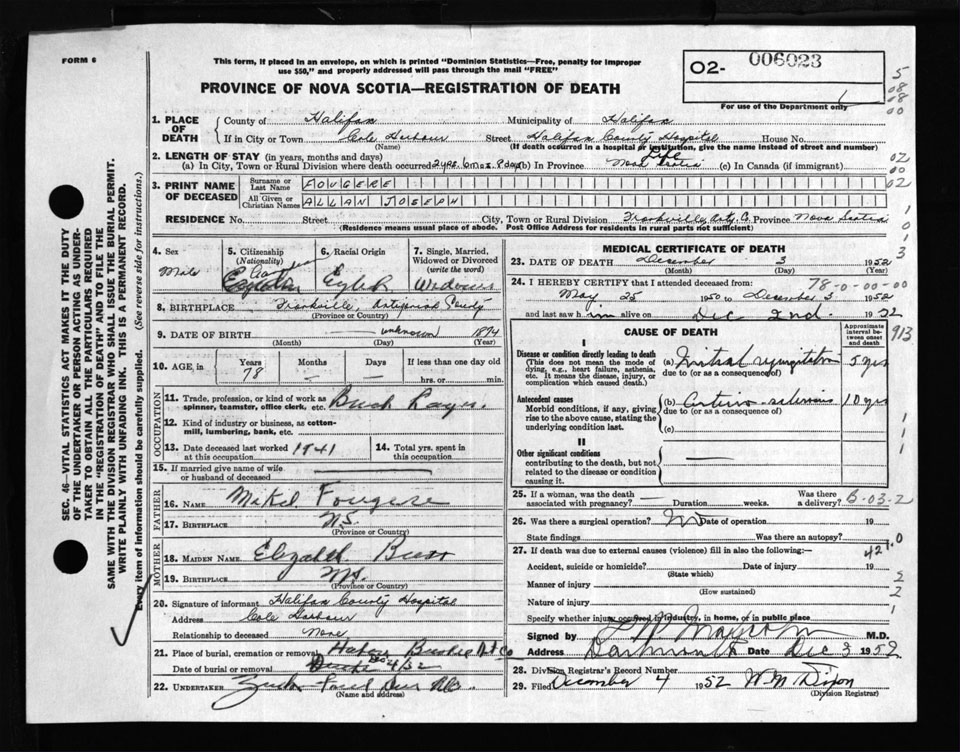 FORM 6
This form, if placed in an envelope, on which is printed "Dominion Statistics—Free, penalty for improper
use $50," and properly addressed will pass through the mail "FREE"
O2- 006023
For use of the Department only
PROVINCE OF NOVA SCOTIA—REGISTRATION OF DEATH
1. PLACE OF DEATH
County of Halifax Municipality of Halifax
If in City or Town Cole Harbour Street Halifax County Hospital House No.
(Name) (If death occurred in a hospital or institution, give the name instead of street and number)
2. LENGTH OF STAY (in years, months and days)
(a) In City, Town or Rural Division where death occurred 2 yrs. 6 mos. 8 days (b) In Province Life Nova Scotia (c) In Canada (if immigrant)
3. PRINT NAME OF DECEASED
Surname or Last Name FOUGERE
All Given or Christian Names ALLAN JOSEPH
RESIDENCE No. Street City, Town or Rural Division Frankville Antg. Co. Province Nova Scotia
(Residence means usual place of abode. Post Office Address for residents in rural parts not sufficient)
4. Sex Male
5. Citizenship (Nationality) Canadian
6. Racial Origin
7. Single, Married, Widowed or Divorced (write the word) Widower
8. BIRTHPLACE Frankville Antigonish County
(Province or Country)
9. DATE OF BIRTH unknown 1874
(Month) (Day) (Year)
10. AGE, in Years 78 Months — Days If less than one day old
hrs. or min.
OCCUPATION
11. Trade, profession, or kind of work as spinner, teamster, office clerk, etc.
12. Kind of industry or business, as cotton-mill, lumbering, bank, etc.
13. Date deceased last worked at this occupation 1941
14. Total yrs. spent in this occupation
15. If married give name of wife or husband of deceased
FATHER
16. NAME Mikel Fougere
17. BIRTHPLACE NS.
(Province or Country)
MOTHER
18. MAIDEN NAME Elizabeth
19. BIRTHPLACE NS.
(Province or Country)
20. Signature of informant Halifax County Hospital
Address Cole Harbour
Relationship to deceased None
21. Place of burial, cremation or removal
Date of burial or removal Dec 4/52
22. UNDERTAKER
(Name and address)
MEDICAL CERTIFICATE OF DEATH
23. DATE OF DEATH December 3 1952
(Month) (Day) (Year)
24. I HEREBY CERTIFY that I attended deceased from: 78-0-00-00
May 25 1950 to December 3 1952
and last saw him alive on Dec 2nd. 1952
CAUSE OF DEATH
Approximate interval between onset and death
I
Disease or condition directly leading to death
(This does not mean the mode of dying, e.g., heart failure, asthenia, etc. It means the disease, injury, or complication which caused death.)
(a) Mitral regurgitation 5 yrs
due to (or as a consequence of)
Antecedent causes
Morbid conditions, if any, giving rise to the above cause, stating the underlying condition last.
(b) Arterio-sclerosis 10 yrs
due to (or as a consequence of)
(c)
II
Other significant conditions
contributing to the death, but not related to the disease or condition causing it.
25. If a woman, was the death associated with pregnancy? — Duration weeks. Was there a delivery?
26. Was there a surgical operation? No Date of operation 19
State findings Was there an autopsy?
27. If death was due to external causes (violence) fill in also the following:— 421.0
Accident, suicide or homicide? Date of injury 19
(State which)
Manner of injury
(How sustained)
Nature of injury
Specify whether injury occurred in industry, in home, or in public place
Signed by M.D.
Address Dartmouth Date Dec 3 1952
28. Division Registrar's Record Number
29. Filed December 4 1952 W M Dixon
(Division Registrar)
SEC. 46—VITAL STATISTICS ACT MAKES IT THE DUTY
OF THE UNDERTAKER OR PERSON ACTING AS UNDERTAKER
TO OBTAIN ALL THE PARTICULARS REQUIRED
IN THE "REGISTRATION OF DEATH" AND TO FILE THE
SAME WITH THE DIVISION REGISTRAR WHO SHALL ISSUE THE BURIAL PERMIT.
WRITE PLAINLY WITH UNFADING INK. THIS IS A PERMANENT RECORD.
Every item of information should be carefully supplied. (See reverse side for instructions.)